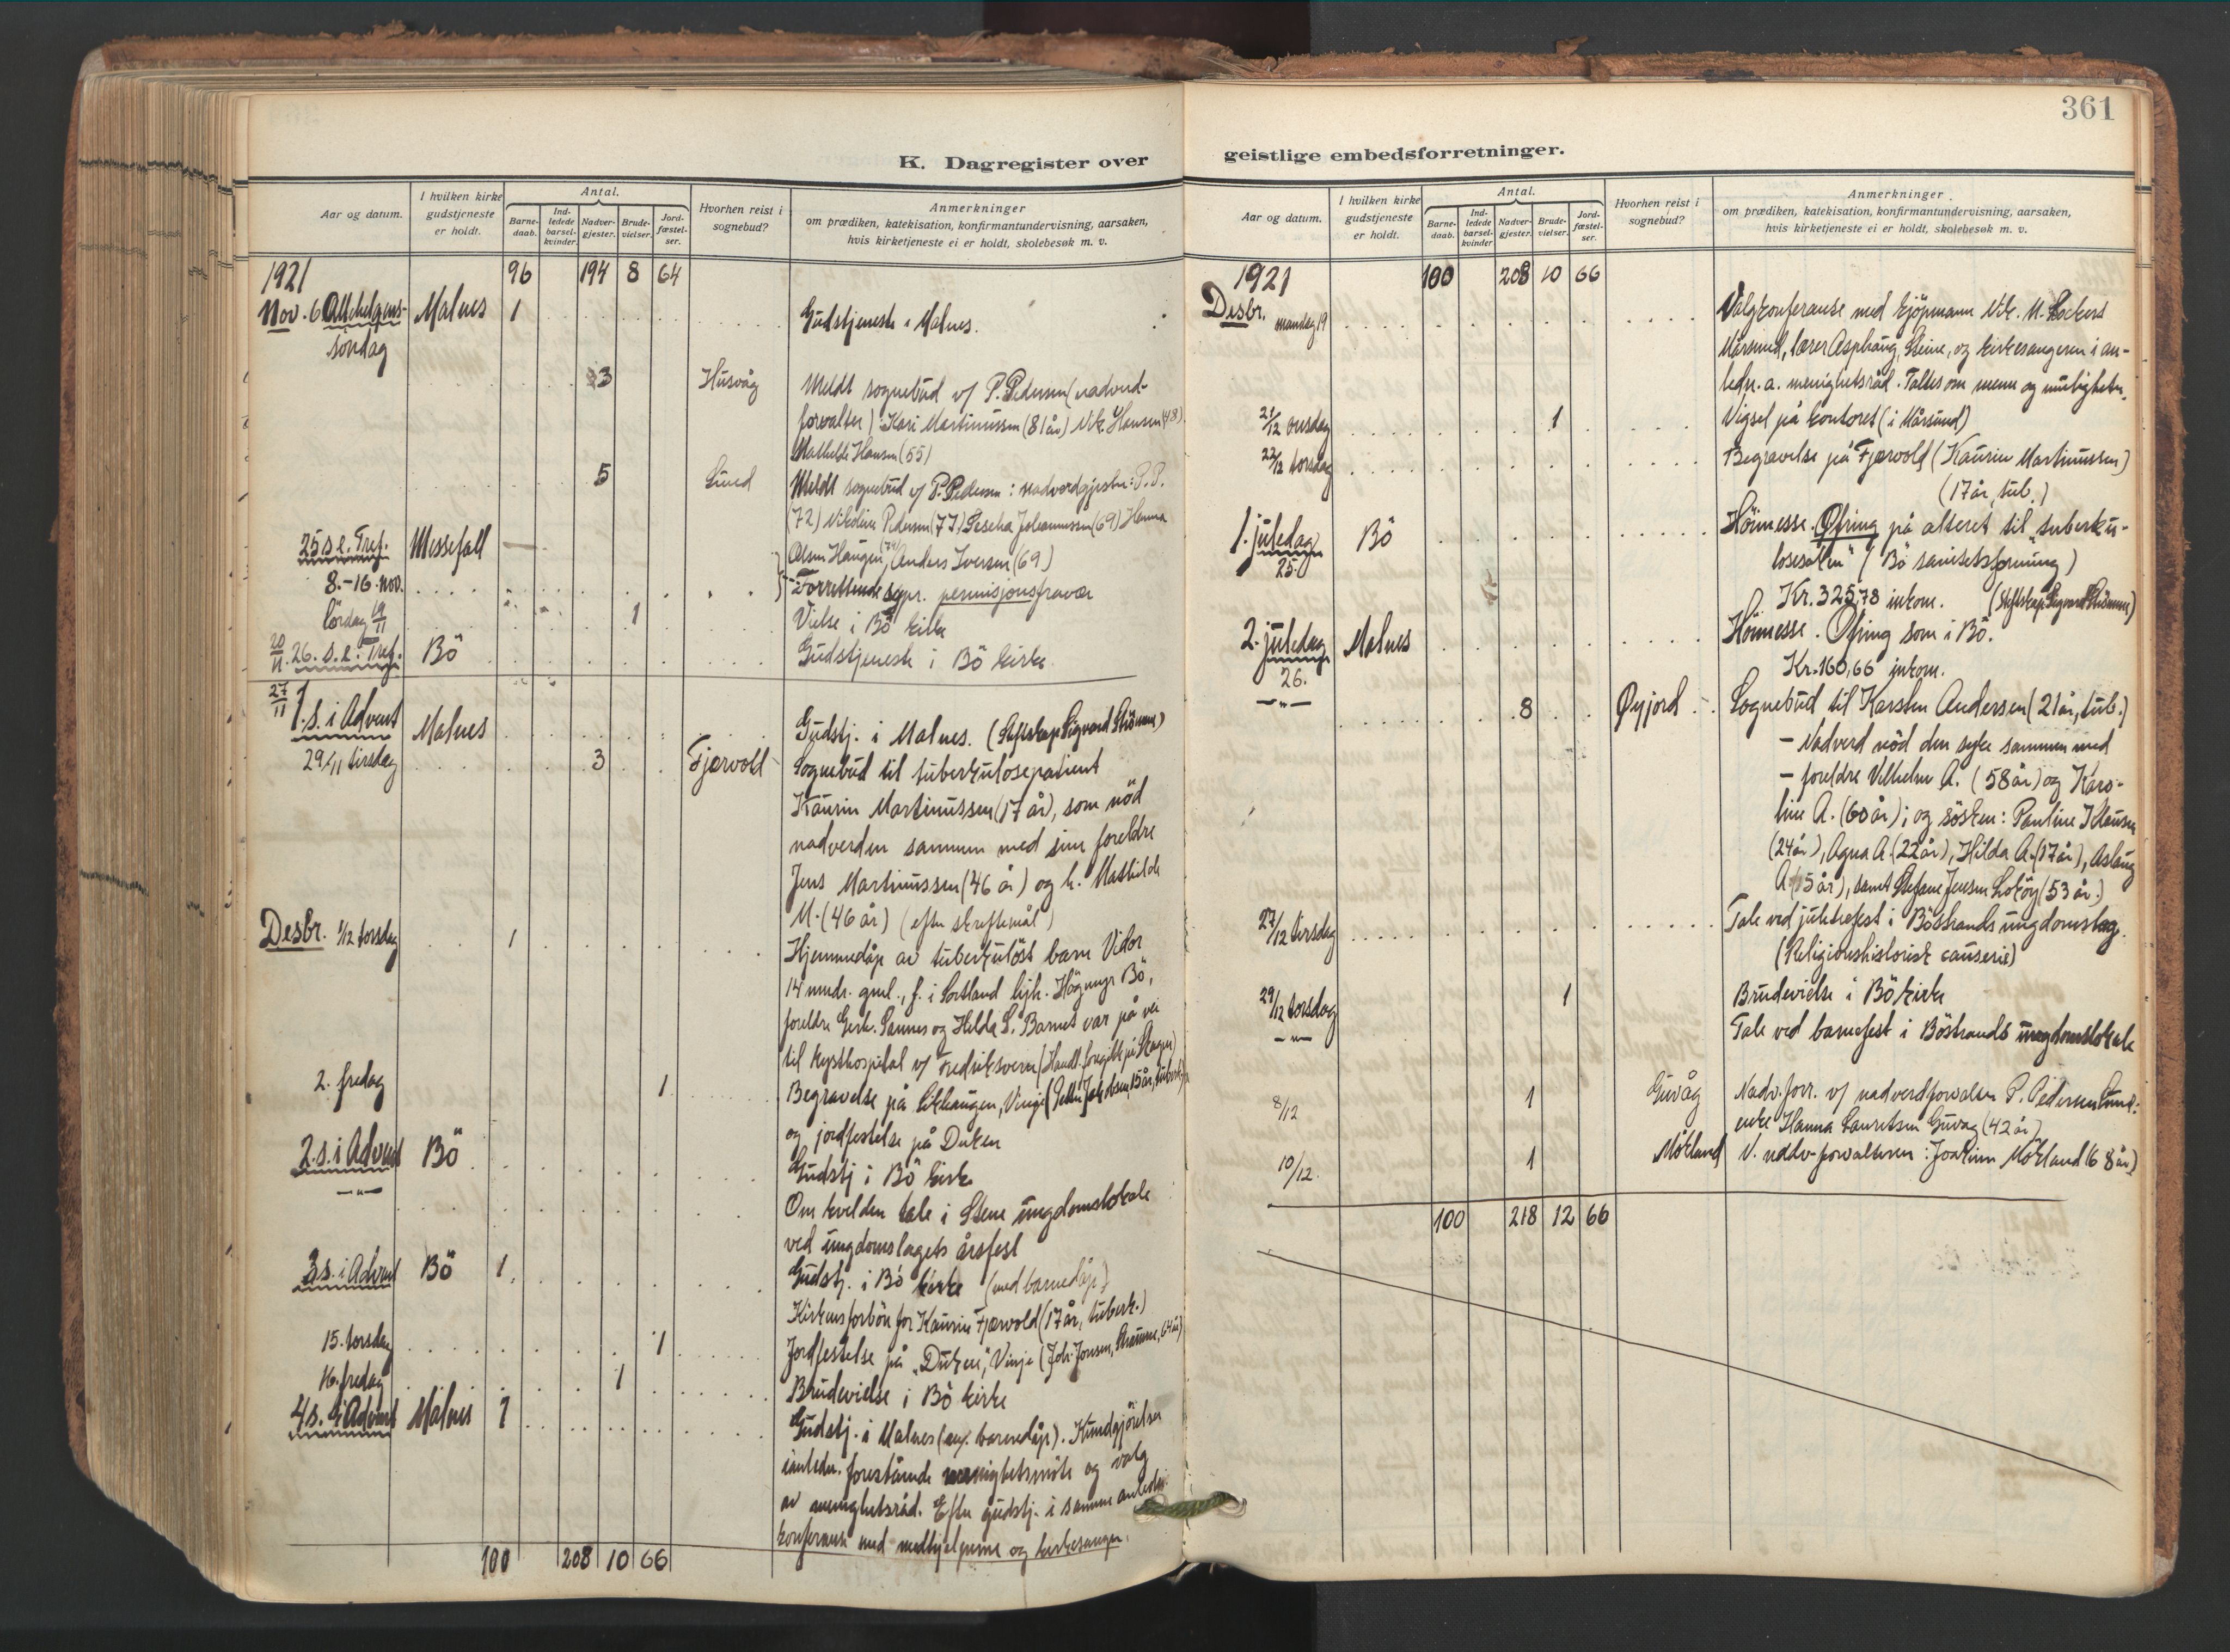 361
K. Dagregister over
Aar og datum.
I hvilken kirke
gudstjeneste
er holdt.
Antal.
Barne-
daab.
Ind-
ledede
barsel-
kvinder.
Nadver-
gjester.
Brude-
vielser.
Jord-
fæstel-
ser.
Hvorhen reist i
sognebud?
Anmerkninger
om prædiken, katekisation, konfirmantundervisning, aarsaken,
hvis kirketjeneste ei er holdt, skolebesøk m. v.
1921 96 194 8 64
Nov. 6 Allehelgens- Malnes 1 Gudstjeneste i Malnes.
søndag
3 Husvåg Meldt sognebud v/ P. Pedersen (nadverd-
forvalter) Kari Martinussen (81 år) Nik. Hansen (48)
Mathilde Hansen (55)
5 Lund Meldt sognebud v/ P. Pedersen: nadverdgjester: P. P.
(72) Nikoline Pedersen (77) Johannessen (69) Hanna
25 s. e. Tref. Messefall Olsen Haugen, Anders Iversen (69)
8.-16. nov. permisjonsfravær
lördag 19/11 1 Vielse i Bö kirke
20/11. 26. s. e. Tref. Bö Gudstjeneste i Bö kirke
27/11 1. s. i Advent Malnes Gudstj. i Malnes. (Sigvard Strömme)
29/11 tirsdag 3 Fjærvoll Sognebud til tuberkulosepatient
Kaurin Martinussen (17 år), som nöd
nadverden sammen med sine foreldre
Jens Martinussen (46 år) og h. Mathilde
M. (46 år) (efter skriftemål)
Desbr. 1/12 torsdag 1 Hjemmedåp av tuberkulöst barn Vidar
14 mndr. gml., f. i Sortland Bö,
foreldre Sannes og Hilda S. Barnet var på vei
til kysthospital v/ Fredriksvern
2. fredag 1 Begravelse på Vinje (15 år, tuberk.)
og jordfestelse på Duken
2. s. i Advent Bö Gudstj i Bö kirke
-"- Om kvelden tale i Stene ungdomslokale
ved ungdomslagets årsfest
3 s. i Advent Bö 1 Gudstj. i Bö kirke (med barnedåp)
Kirkens forbön for Kaurin Fjærvold (17 år, tuberk.)
15. torsdag 1 Jordfestelse på "Duken", Vinje (Joh. Jonsen, 64 år)
16. fredag 1 Brudevielse i Bö kirke
4 s. i Advent Malnes 1 Gudstj. i Malnes (barnedåp). Kundgjörelse
i anledn. forestående menighetsmöte og valg
av menighetsråd. Efter gudstj. i samme anledn.
konferanse med medhjelperne og kirkesanger.
100 208 10 66
geistlige embedsforretninger.
Aar og datum.
I hvilken kirke
gudstjeneste
er holdt.
Antal.
Barne-
daab.
Ind-
ledede
barsel-
kvinder
Nadver-
gjester.
Brude-
vielser.
Jord-
fæstel-
ser.
Hvorhen reist i
sognebud?
Anmerkninger
om prædiken, katekisation, konfirmantundervisning, aarsaken,
hvis kirketjeneste ei er holdt, skolebesøk m. v.
1921 100 208 10 66
Desbr. mandag 19 Valgkonferanse med kjöpmann Nik. M.
Mårsund, lærer Asphaug, Steine, og kirkesangeren i an-
ledn. a. menighetsråd. Taltes om menn og muligheter.
21/12 onsdag 1 Vigsel på kontoret (i Mårsund)
22/12 torsdag Begravelse på Fjærvold (Kaurin Martinussen)
(17 år, tub.)
1. juledag Bö Höimesse. Ofring på alteret til "tuberku-
25. losesaken" (Bö sanitetsforening)
Kr. 325,78 innkom. (Sigvard Strömme)
2. juledag Malnes Höimesse. Ofring som i Bö.
26. Kr. 160,66 innkom.
-"- 8 Øyjord Sognebud til Karsten Andersen (21 år, tub.)
- Nadverd nöd den syke sammen med
- foreldre Vilhelm A. (58 år) og Karo-
line A. (60 år); og sösken: Pauline Klausen
(24 år), Agna A. (22 år), Hilda A. (17 år), Aslaug
A. (15 år), samt Stefane Jensen (53 år.)
27/12 tirsdag Tale ved juletrefest i Böstrands ungdomslag.
(Religionshistorisk causerie)
29/12 torsdag 1 Brudevielse i Bö kirke
-"- Tale ved barnefest i Böstrands ungdomslokale
8/12 1 Guvåg Nadv. forr. v/ nadverdforvalter P. Pedersen Lund:
enke Hanna Lauritsen Guvåg (42 år)
10/12. 1 Mökland V. nadv. forvalteren: Joakim Mökland (68 år)
100 218 12 66